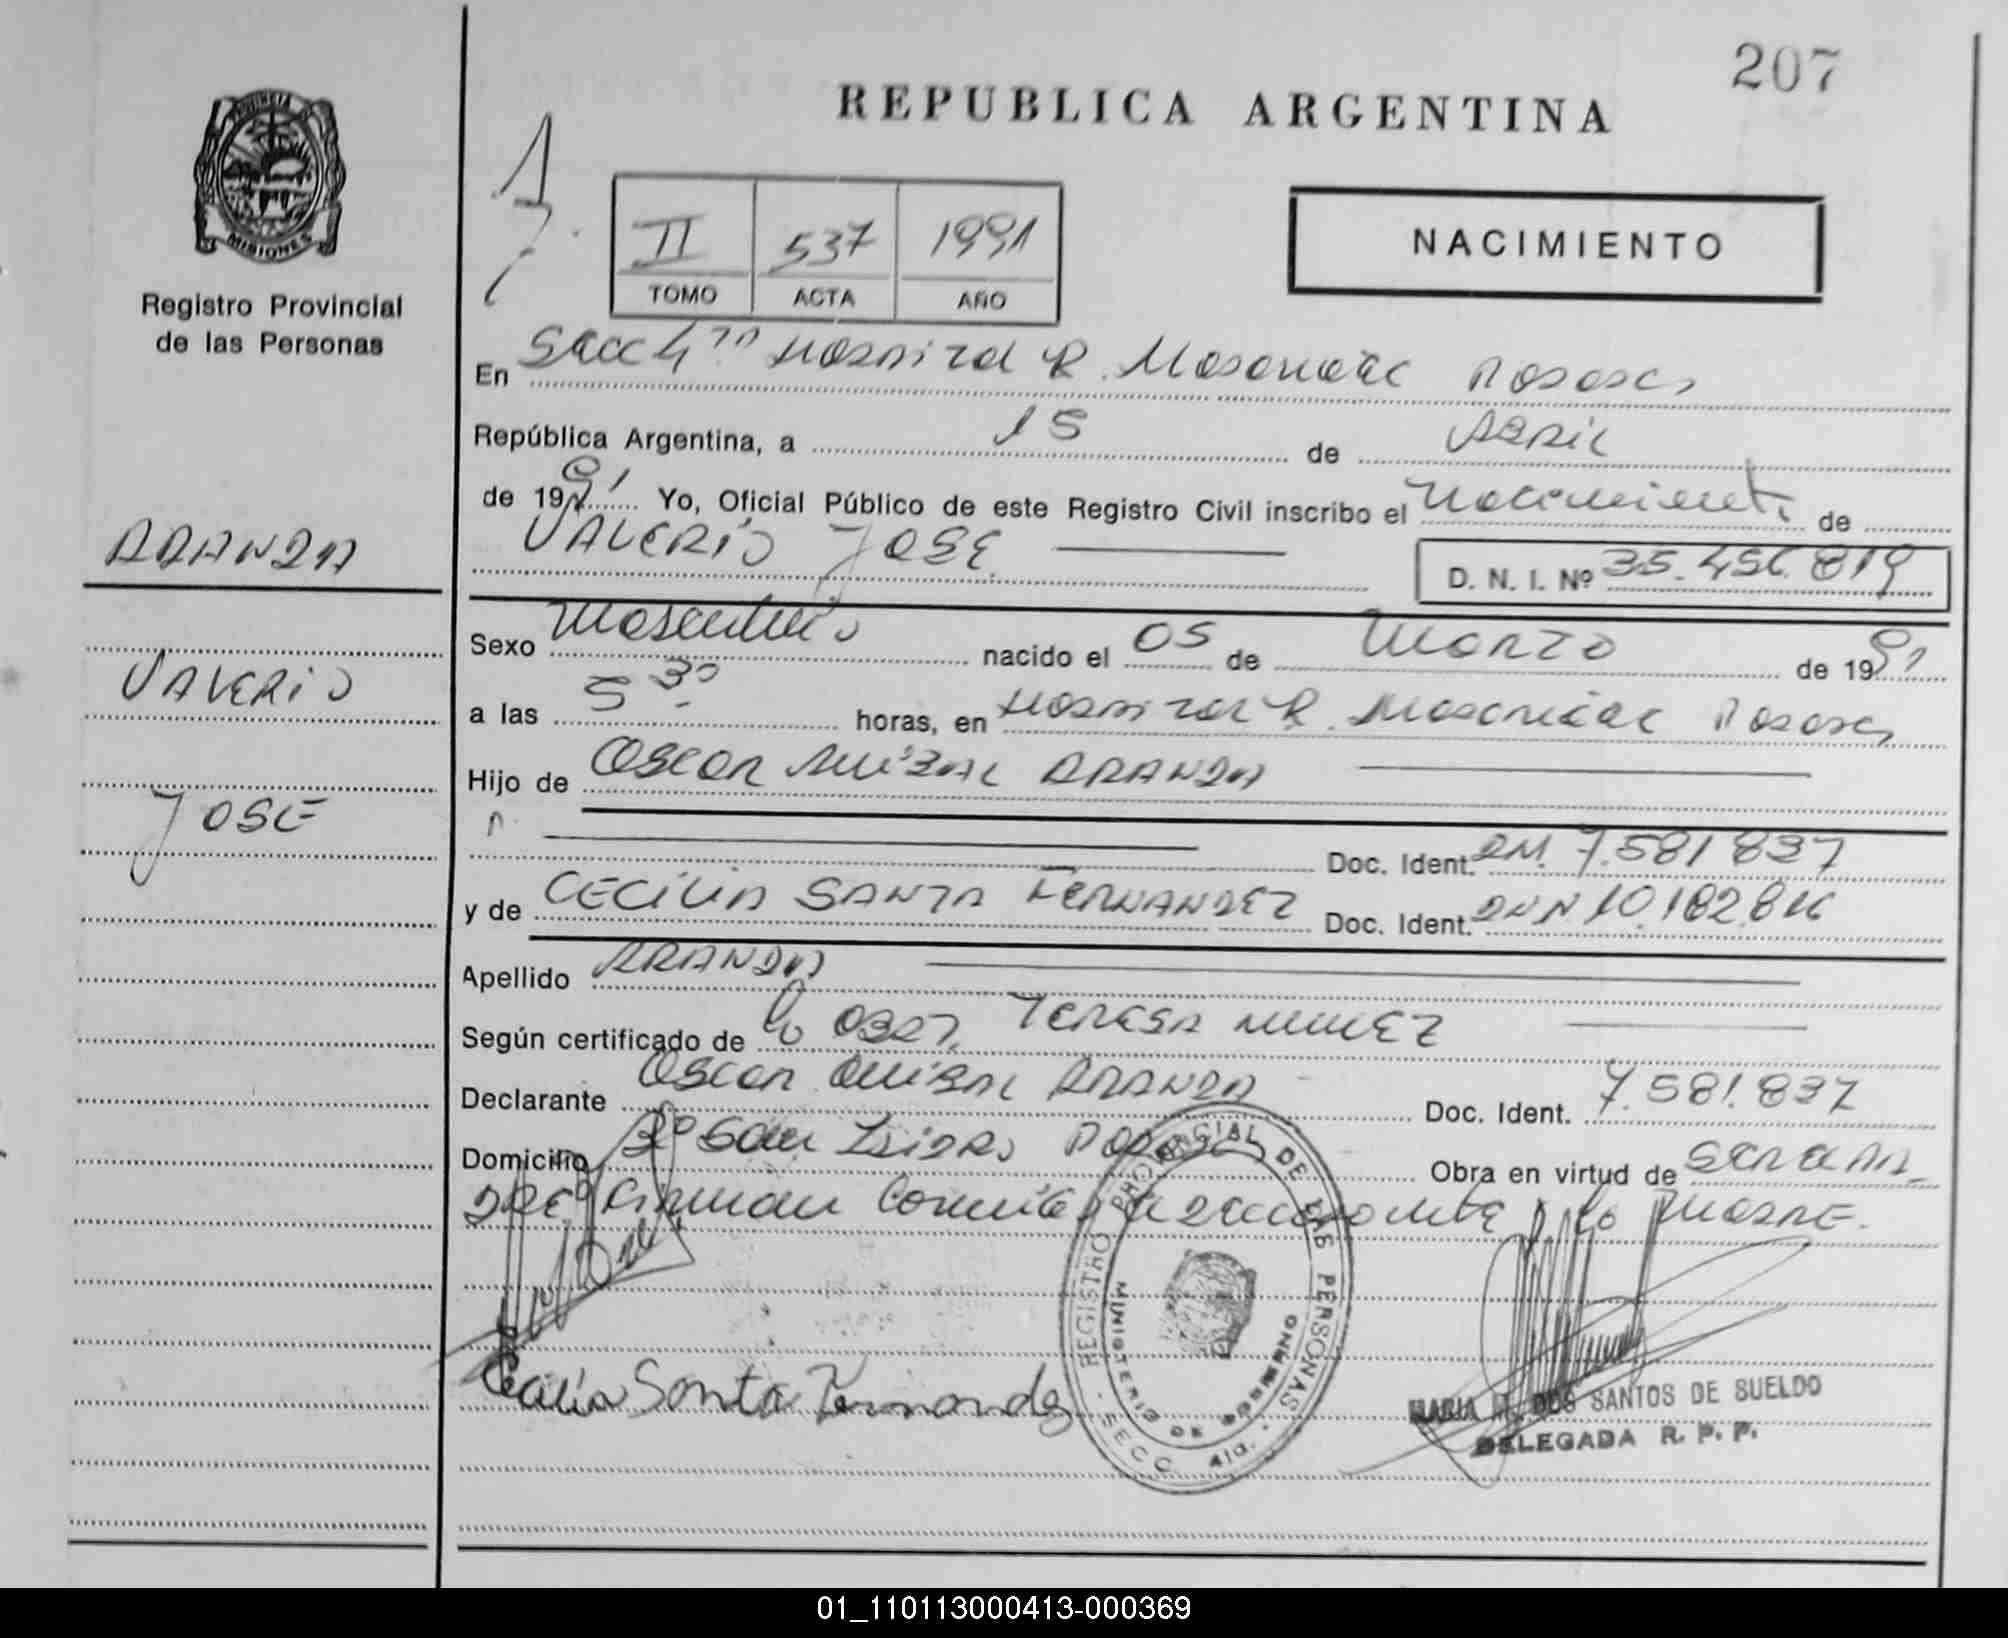 207
REPUBLICA ARGENTINA
PROVINCIA
MISIONES
Registro Provincial
de las Personas
II 537 1991
TOMO ACTA AÑO
NACIMIENTO
En Secc 4ta Hospital R. Madariaga Posadas
República Argentina, a 15 de Abril
de 1991 Yo, Oficial Público de este Registro Civil inscribo el Nacimiento de
VALERIO JOSE
D. N. I. Nº 35.456.819
ARANDA
VALERIO
JOSE
Sexo Masculino nacido el 05 de Marzo de 1991
a las 5 30 horas, en Hospital R. Madariaga Posadas
Hijo de OSCAR ANIBAL ARANDA
Doc. Ident. DNI. 7.581.837
y de CECILIA SANTA FERNANDEZ Doc. Ident. DNI Nº 10.182.816
Apellido ARANDA
Según certificado de la OBST. TERESA NUÑEZ
Declarante OSCAR ANIBAL ARANDA Doc. Ident. 7.581.837
Domicilio Bº San Isidro Posadas Obra en virtud de SER EL PA-
DRE. Firman la madre.
Cecilia Santa Fernandez
REGISTRO PROVINCIAL DE LAS PERSONAS
MINISTERIO DE GOBIERNO
SECC. 4ta.
MARIA DOS SANTOS DE SUELDO
DELEGADA R. P. P.
01_110113000413-000369